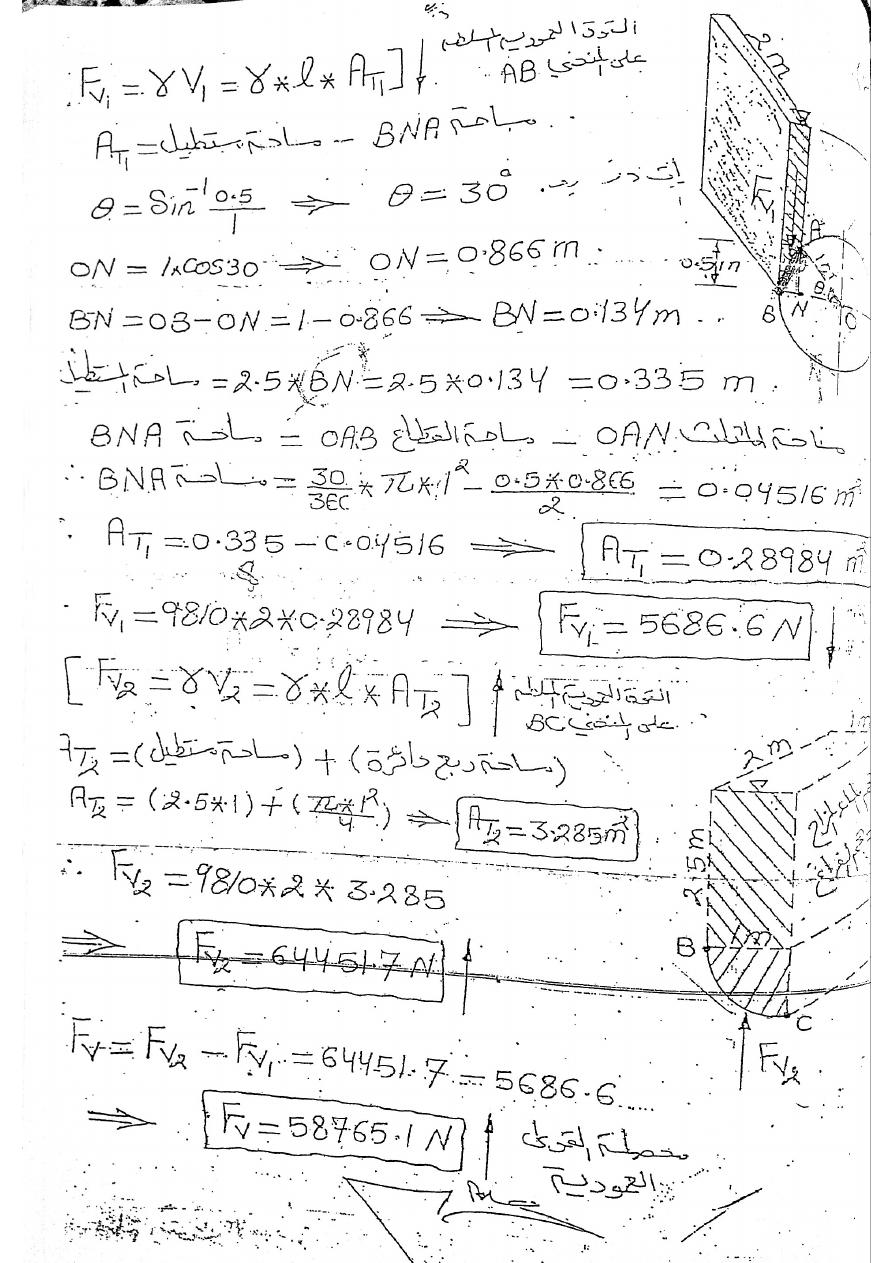 القوة العمودية المسلطة
على المنحني AB
F_{V_1} = γ V_1 = γ * l * A_{T_1} ] ↓
2m
A_{T_1} = مساحة مستطيل - مساحة BNA
θ = Sin^{-1} 0.5/1 ⇒ θ = 30°
F_{V_1}
A
ON = 1 x COS30 ⇒ ON = 0.866 m .
0.5m
1m
B N O
BN = OB - ON = 1 - 0.866 ⇒ BN = 0.134 m ..
مساحة المستطيل = 2.5 * BN = 2.5 * 0.134 = 0.335 m .
مساحة BNA = مساحة القطاع OAB - مساحة المثلث OAN
∴ مساحة BNA = 30/360 * π * 1^2 - 0.5 * 0.866/2 = 0.04516 m^2
∴ A_{T_1} = 0.335 - 0.04516 ⇒ A_{T_1} = 0.28984 m^2
F_{V_1} = 9810 * 2 * 0.28984 ⇒ F_{V_1} = 5686.6 N ↓
[ F_{V_2} = γ V_2 = γ * l * A_{T_2} ] ↑ القوة العمودية المسلطة
على المنحني BC
A_{T_2} = (مساحة مستطيل) + (مساحة ربع دائرة)
A_{T_2} = (2.5 * 1) + (π * 1^2/4) ⇒ A_{T_2} = 3.285 m^2
2m
1m
2.5m
∴ F_{V_2} = 9810 * 2 * 3.285
⇒ F_{V_2} = 64451.7 N ↑
B 1m
C
F_{V_2}
F_V = F_{V_2} - F_{V_1} = 64451.7 - 5686.6
⇒ F_V = 58765.1 N ↑ محصلة القوى
العمودية